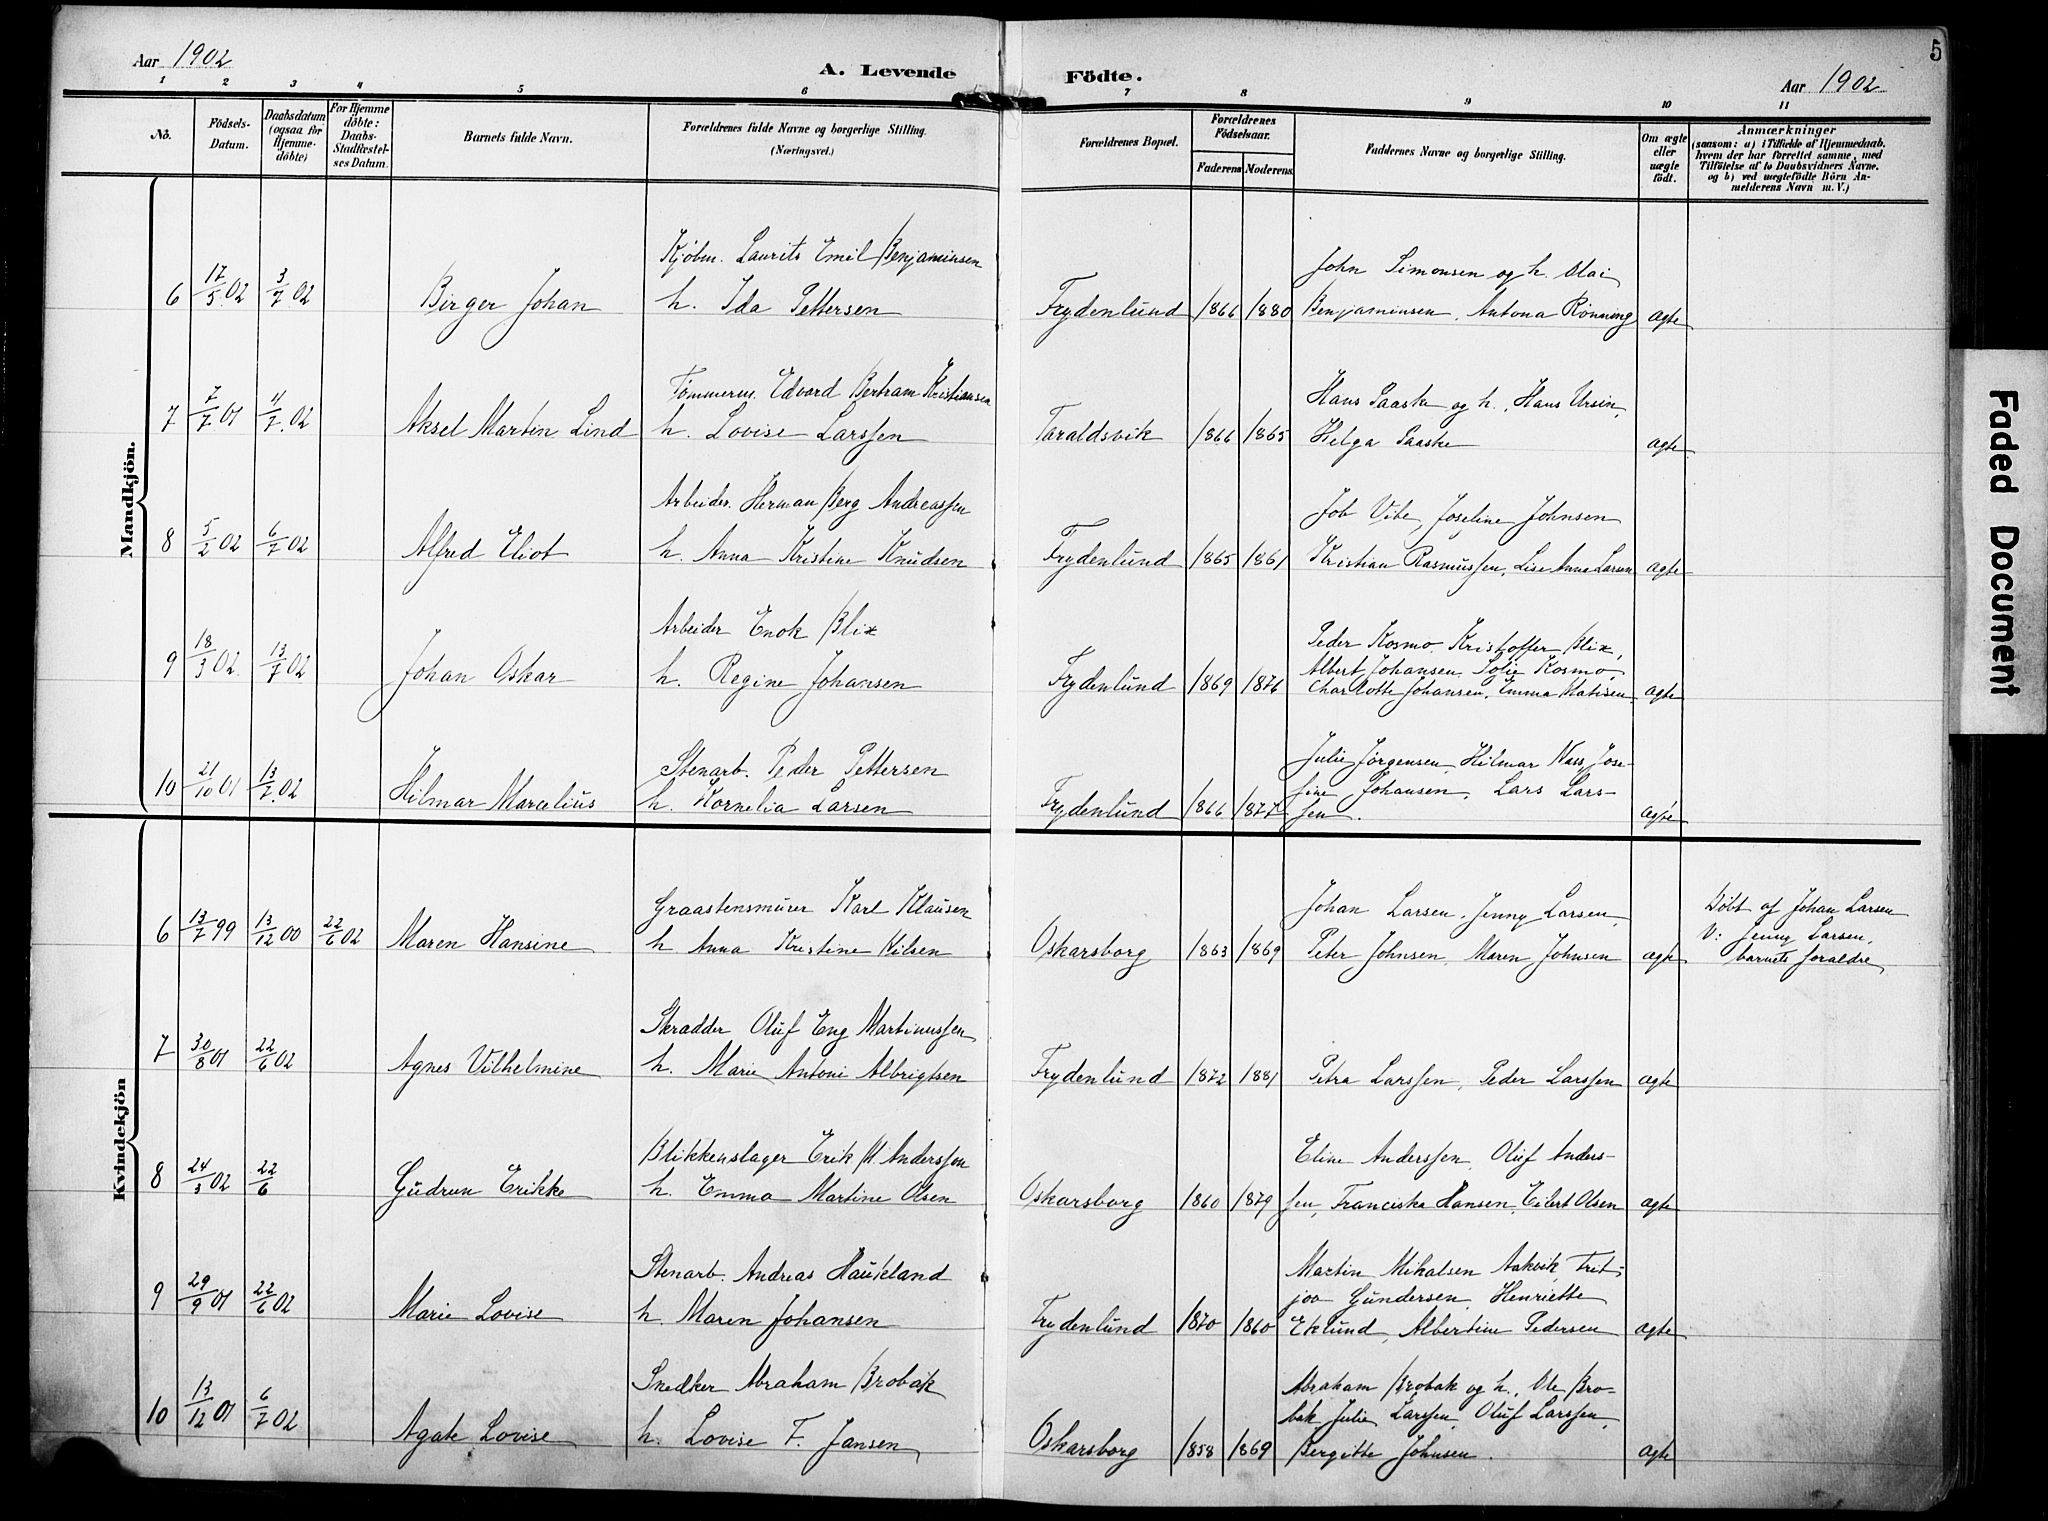 Aar 1902
A. Levende
Födte.
Aar 1902
5
1 2 3 4 5 6 7 8 9 10 11
Nö.
Födsels-Datum.
Daabsdatum (ogsaa för Hjemmedöbte)
For Hjemmedöbte: Daabs-Stadfæstelses Datum.
Barnets fulde Navn.
Forældrenes fulde Navne og borgerlige Stilling.
(Næringsvei.)
Forældrenes Bopæl.
Forældrenes Födselsaar.
Faderens Moderens
Faddernes Navne og borgerlige Stilling.
Om ægte eller uægte födt.
Anmærkninger
(saasom: a) i Tilfælde af Hjemmedaab,
hvem der har forrettet samme, med
Tilföielse af to Daabsvidners Navne.
og b) ved uægtefödte Börn An-
melderens Navn m. V.)
Mandkjön.
Kjøbm. Laurits Emil Benjaminsen
John Simonsen og h. Olai
6 17/5 02 3/7 02 Birger Johan h. Ida Pettersen Frydenlund 1866 1880 Benjaminsen, Antona Rønning ægte
Tømmerm. Edvard Bertram Kristiansen
Hans Saaske og h., Hans Ursin,
7 7/7 01 4/7 02 Aksel Martin Lind h. Lovise Larssen Taraldsvik 1866 1865 Helga Saaske ægte
Arbeider. Herman Berg Andreassen
Job Vibe, Joseline Johnsen
8 5/2 02 6/7 02 Alfred Eliot h. Anna Kristine Knudsen Frydenlund 1865 1861 Kristian Rasmussen, Lise Anna Larsen ægte
Arbeider Enok Blix
Peder Kosmo, Kristoffer Blix,
Albert Johansen, Solie Kosmo,
9 18/3 02 13/7 02 Johan Oskar h. Regine Johansen Frydenlund 1869 1876 Charlotte Johansen, Emma Matisen ægte
Stenarb. Peder Pettersen
Julie Jørgensen, Hilmar Næss, Jose-
fine Johansen, Lars Lars-
10 21/10 01 13/7 02 Hilmar Marcelius h. Kornelia Larsen Frydenlund 1866 1877 sen. ægte
Kvindekjön
Graastensmurer Karl Klausen
Johan Larsen, Jenny Larsen,
Døbt af Johan Larsen
V: Jenny Larsen,
6 13/7 99 13/12 00 22/6 02 Maren Hansine h. Anna Kristine Nilsen Oskarsborg 1863 1869 Peter Johnsen, Maren Johnsen ægte barnets forældre
Skrædder Oluf Eng Martinussen
7 30/8 01 22/6 02 Agnes Vilhelmine h. Marie Antoni Albrigtsen Frydenlund 1872 1881 Petra Larssen, Peder Larssen ægte
Blikkenslager Erik M. Anderssen
Eline Anderssen, Oluf Anders-
8 24/3 02 22/6 Gudrun Erikke h. Emma Martine Olsen Oskarsborg 1860 1879 sen, Franciska Hansen, Eilert Olsen ægte
Stenarb. Andreas Haukland
Martin Mikalsen Aakvik, Frit-
jov Gundersen, Henriette
9 29/9 01 22/6 02 Marie Lovise h. Maren Johansen Frydenlund 1870 1860 Eklund, Albertine Pedersen ægte
Snedker Abraham Brobak
Abraham Brobak og h., Ole Bro-
bak, Julie Larssen, Oluf Larssen,
10 13/12 01 6/7 02 Agate Lovise h. Lovise F. Jansen Oskarsborg 1858 1869 Bergitte Johnsen. ægte
Faded Document